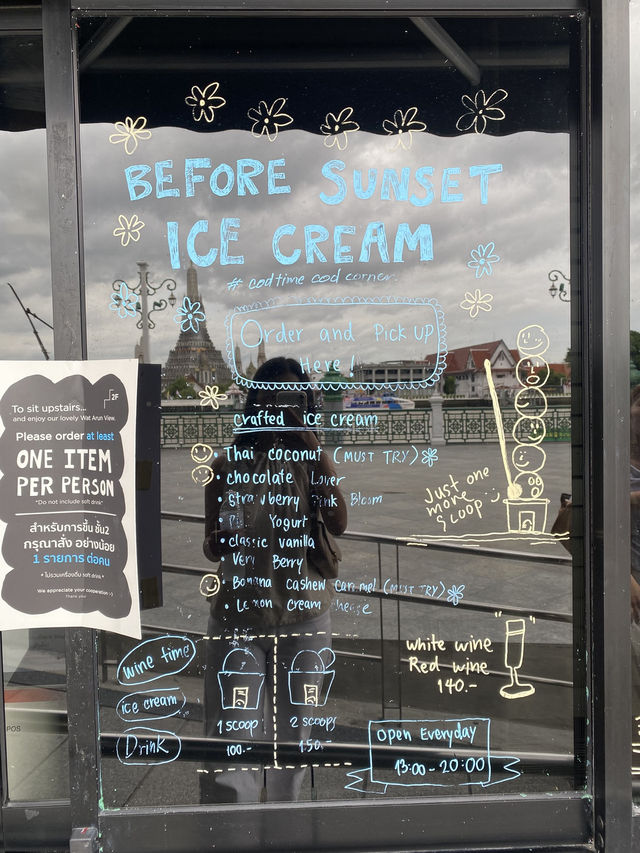 BEFORE SUNSET
ICE CREAM
# codtime cod corner.
Order and Pick UP
Here!
crafted ice cream
• Thai coconut (MUST TRY)
• chocolate Lover
• Strawberry Pink Bloom
Yogurt
• classic vanilla
Very Berry
• Banana cashew caramel (MUST TRY)
• Lemon cream cheese
Just one
more
scoop
wine time
ice cream
Drink
1 scoop
100.-
2 scoops
150.-
white wine
Red wine
140.-
Open Everyday
13:00 - 20:00
2F
To sit upstairs...
and enjoy our lovely Wat Arun View.
Please order at least
ONE ITEM
PER PERSON
*Do not include soft drink*
สำหรับการขึ้น ชั้น2
กรุณาสั่ง อย่างน้อย
1 รายการ ต่อคน
* ไม่รวมเครื่องดื่ม soft drink *
We appreciate your cooperation :-)
Thank you
POS